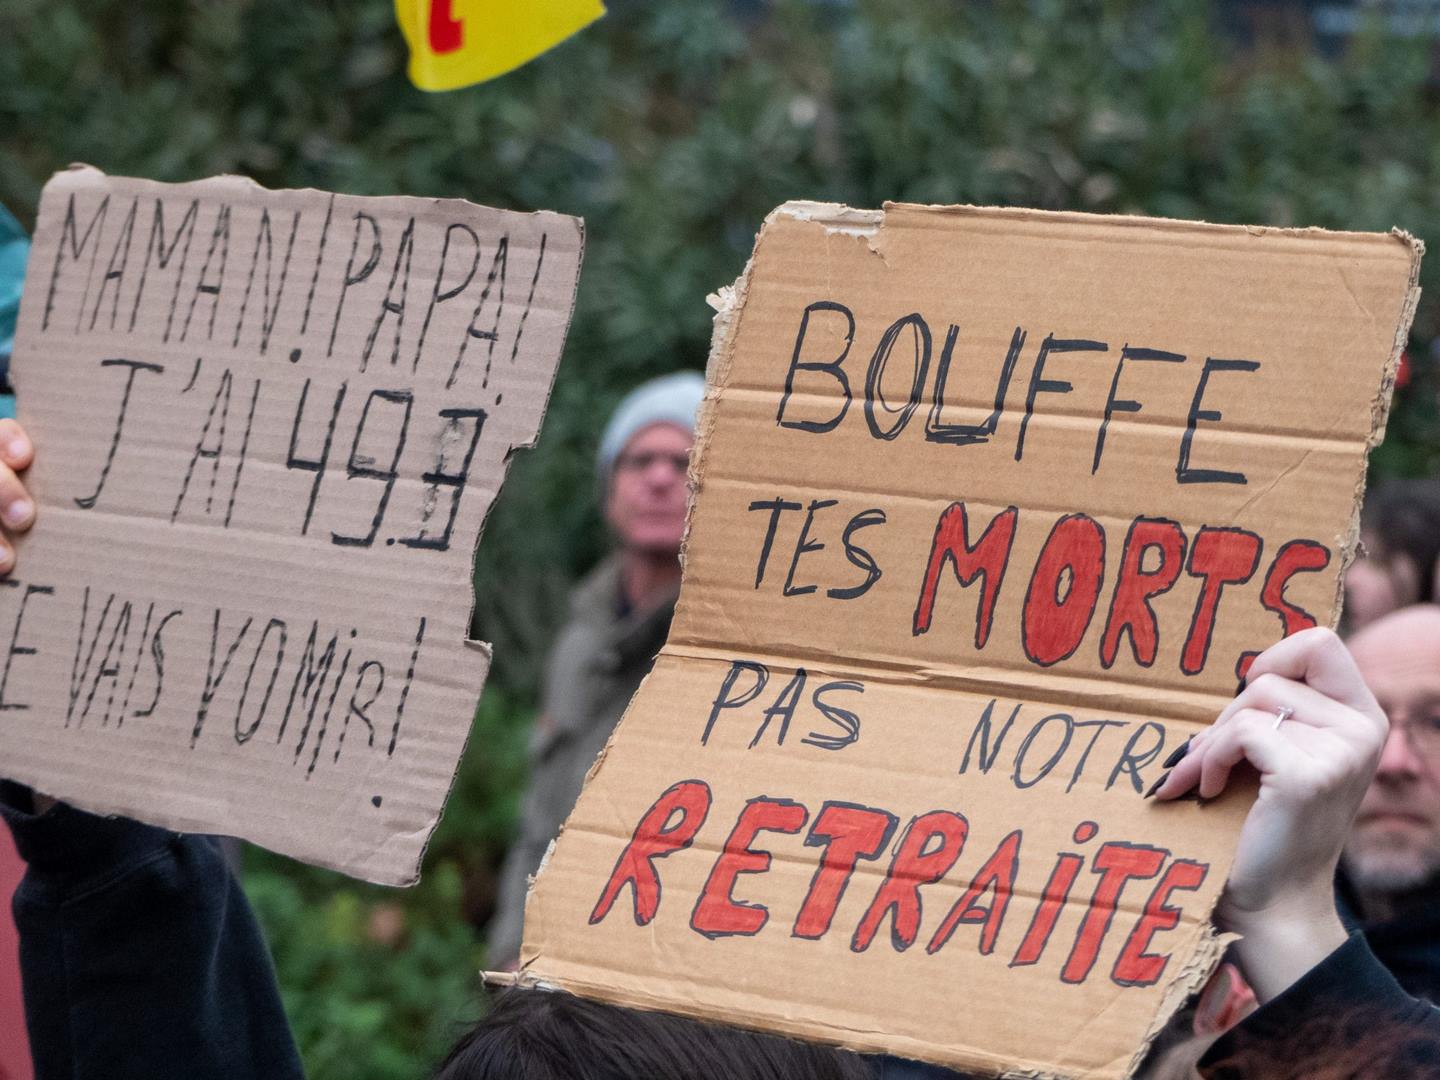 MAMAN! PAPA!
J'AI 49.3
JE VAIS VOMIR!
BOUFFE
TES MORTS
PAS NOTRE
RETRAITE